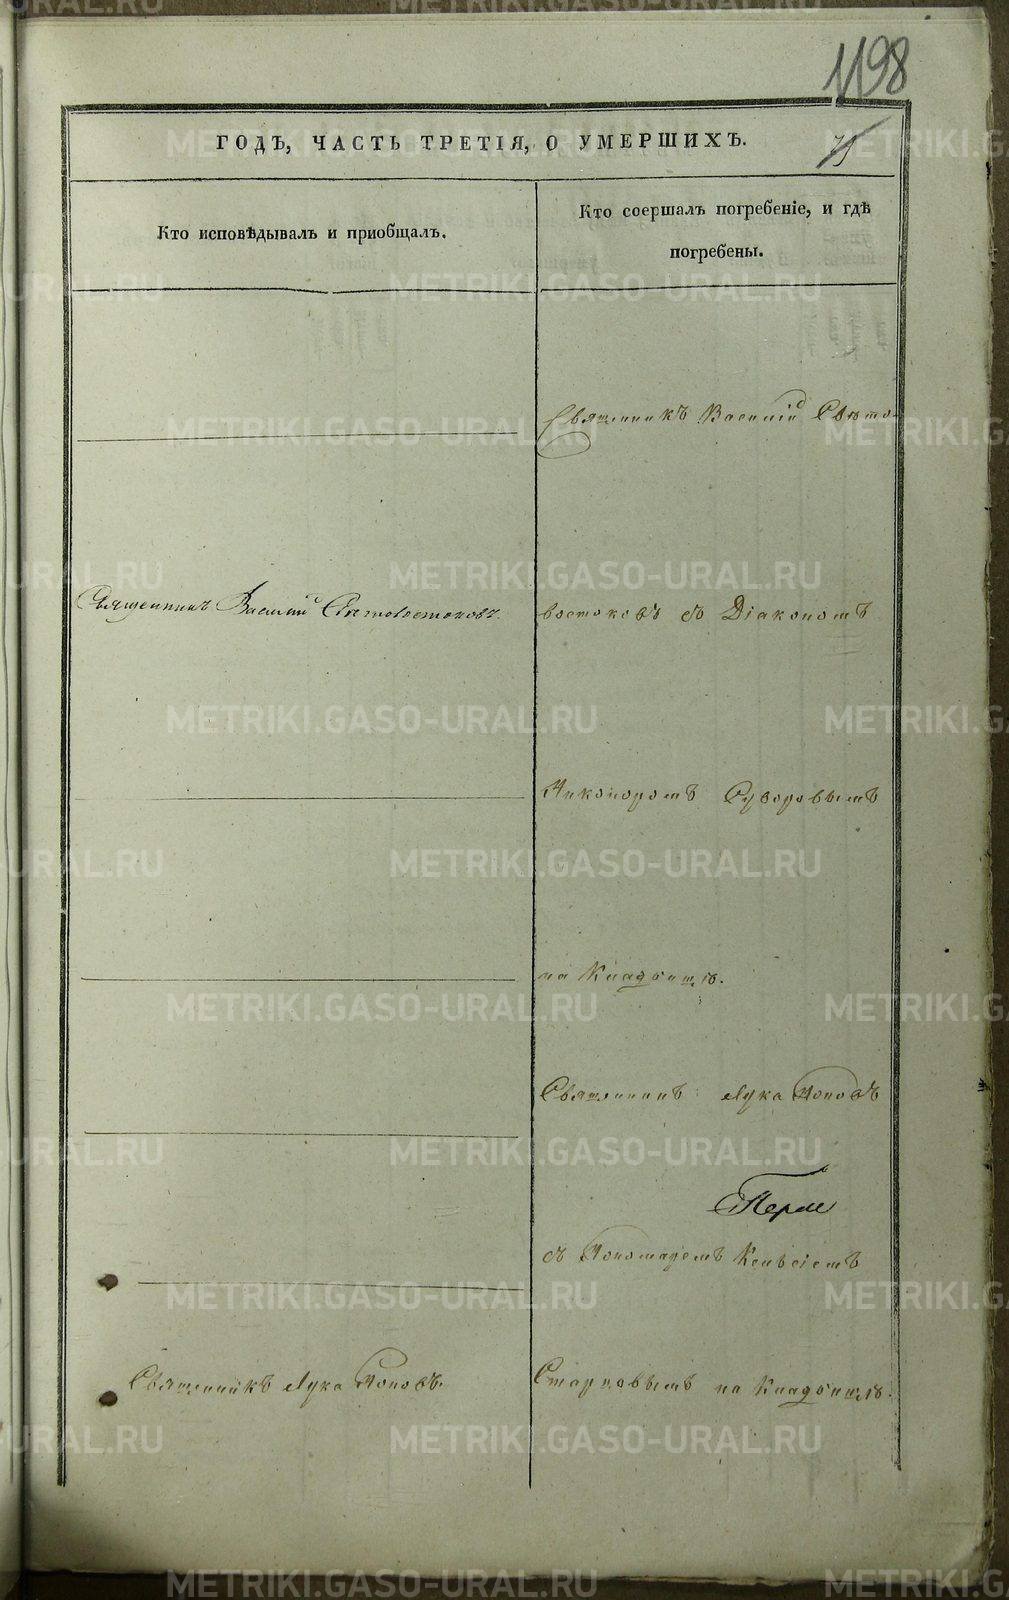 1198
ГОДЪ, ЧАСТЬ ТРЕТІЯ, О УМЕРШИХЪ.
75
Кто исповѣдывалъ и приобщалъ.
Кто соершалъ погребеніе, и гдѣ
погребены.
Священникъ Василій Свѣто-
Священникъ Василій Свѣтовостоковъ.
востоковъ съ Діакономъ
Никоноромъ Суворовымъ
на Кладбищѣ.
Священникъ Лука Поповъ
съ Пономаремъ
Священникъ Лука Поповъ.
Старцовымъ на Кладбищѣ.
METRIKI.GASO-URAL.RU